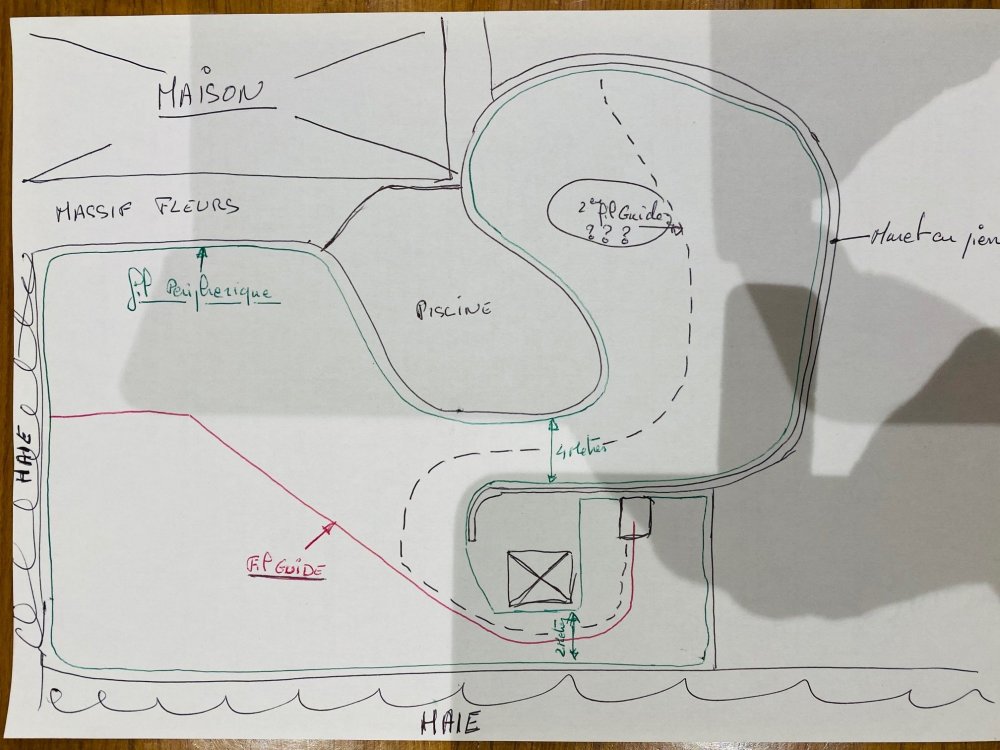 MAISON
MASSIF FLEURS
fil Peripherique
2e fil Guide
? ? ?
Muret en pierr
PISCINE
HAIE
4 Metres
Fil GUIDE
2 Metres
HAIE